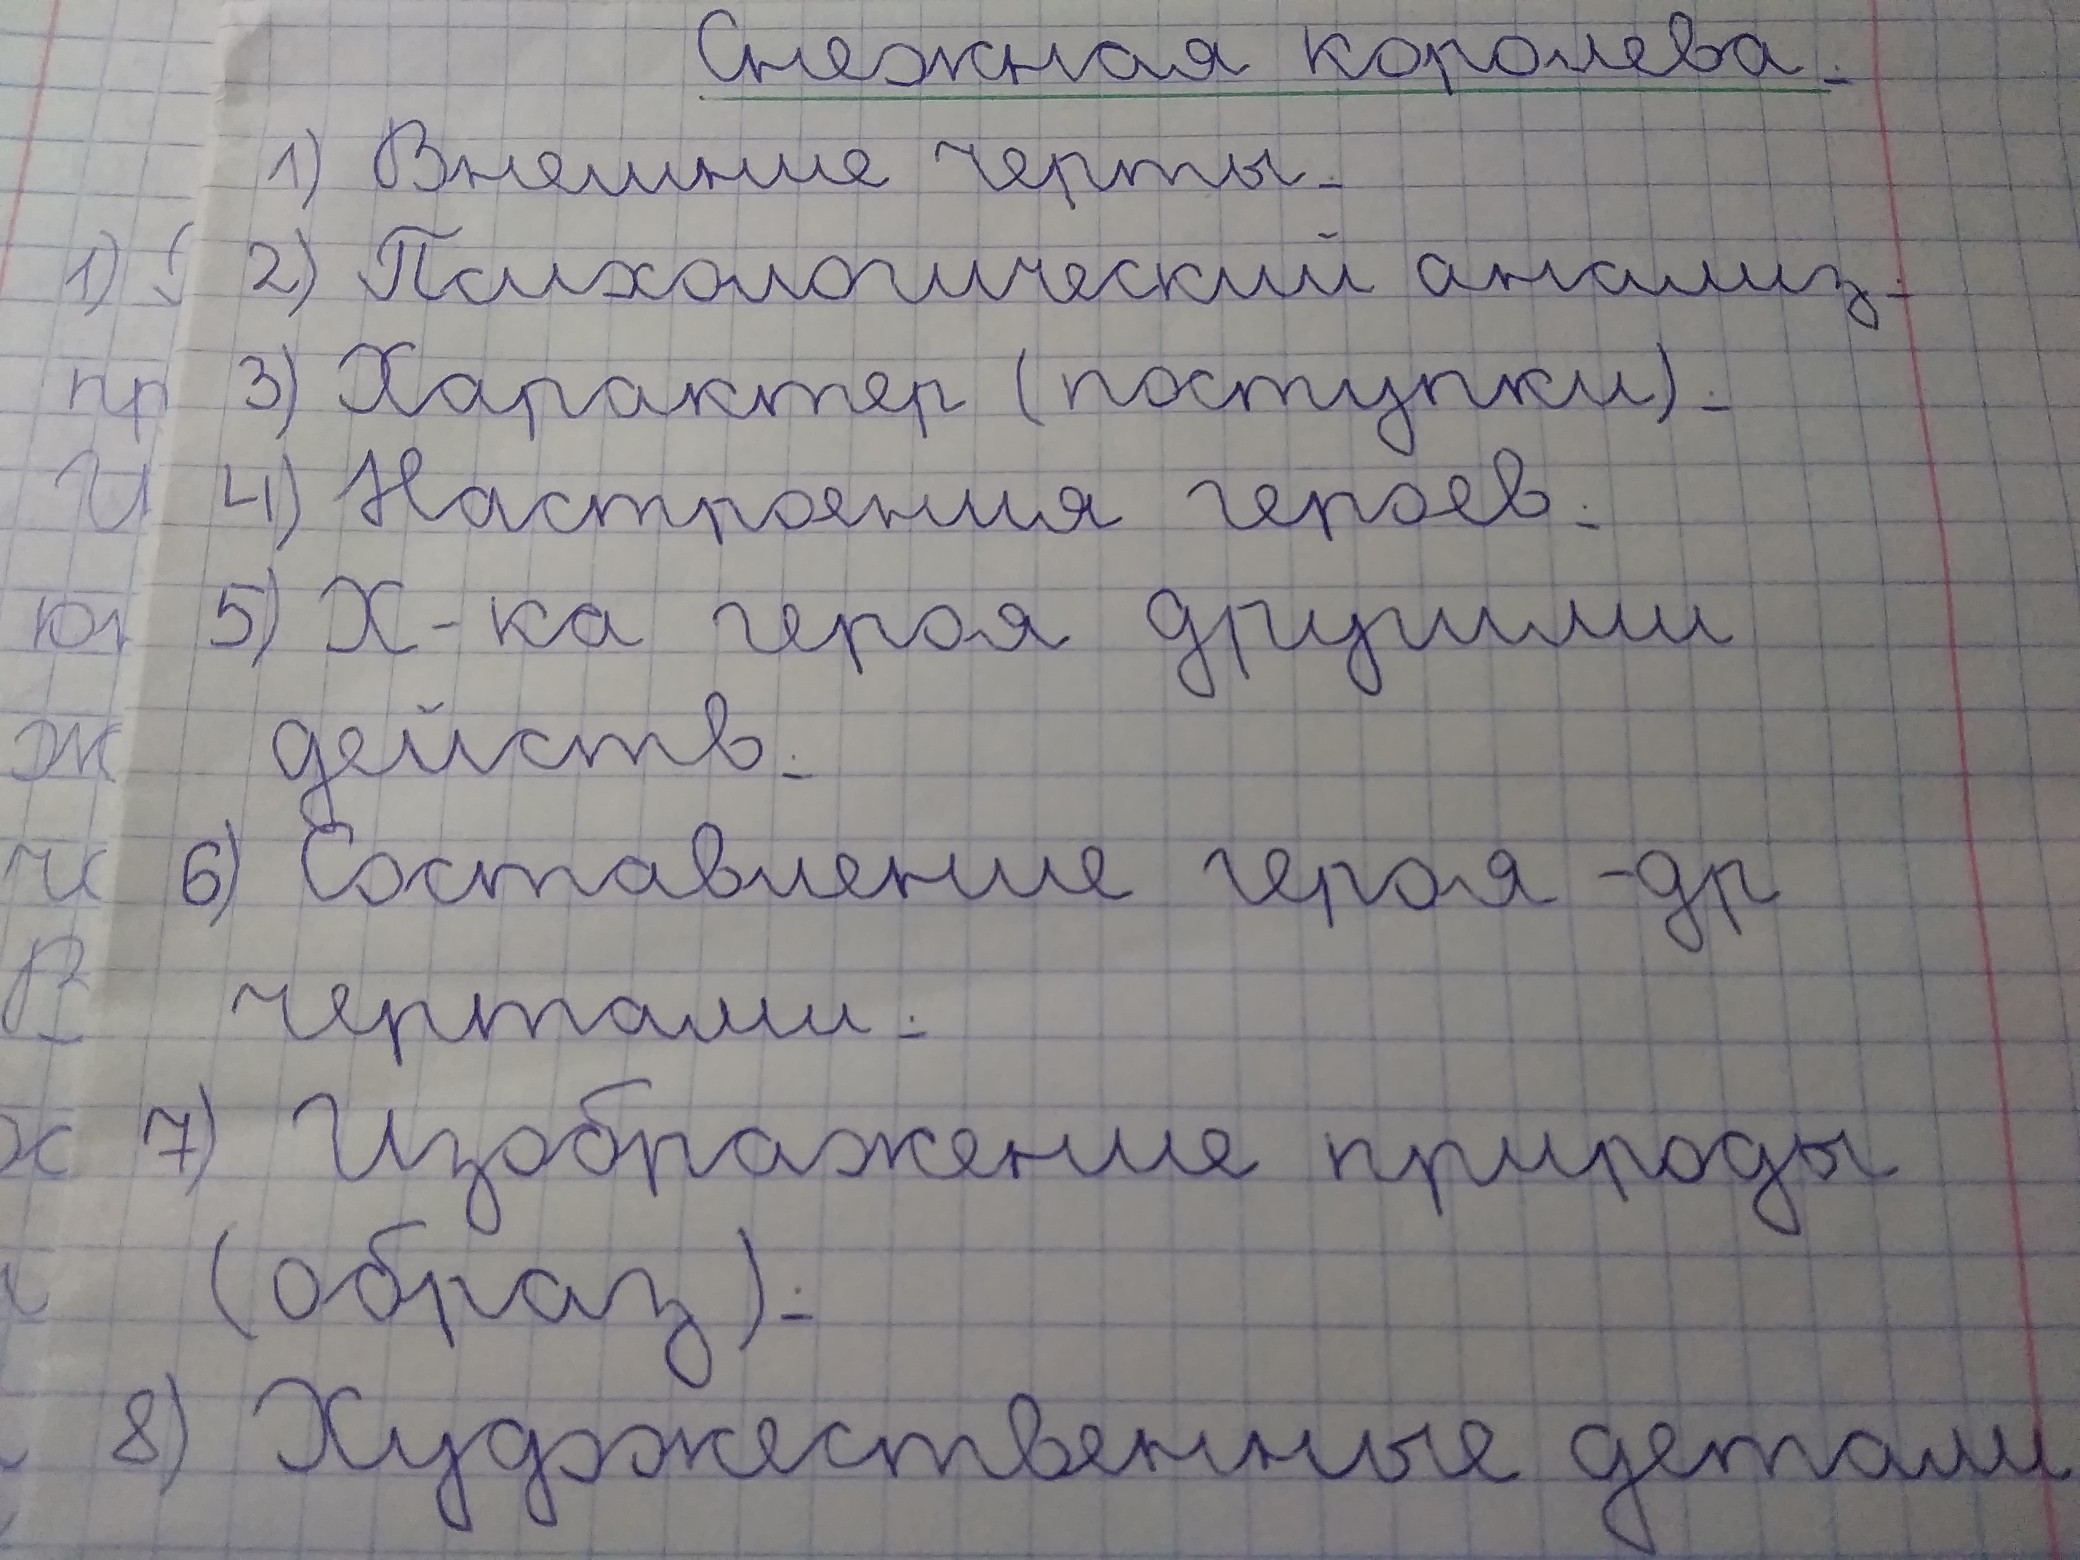 Снежная королева.
1) Внешние черты.
2) Психологический анализ.
3) Характер (поступки).
4) Настроения героев.
5) Х-ка героя другими
действ.
6) Составление героя -др
чертами.
7) Изображение природы
(образ).
8) Художественные детали